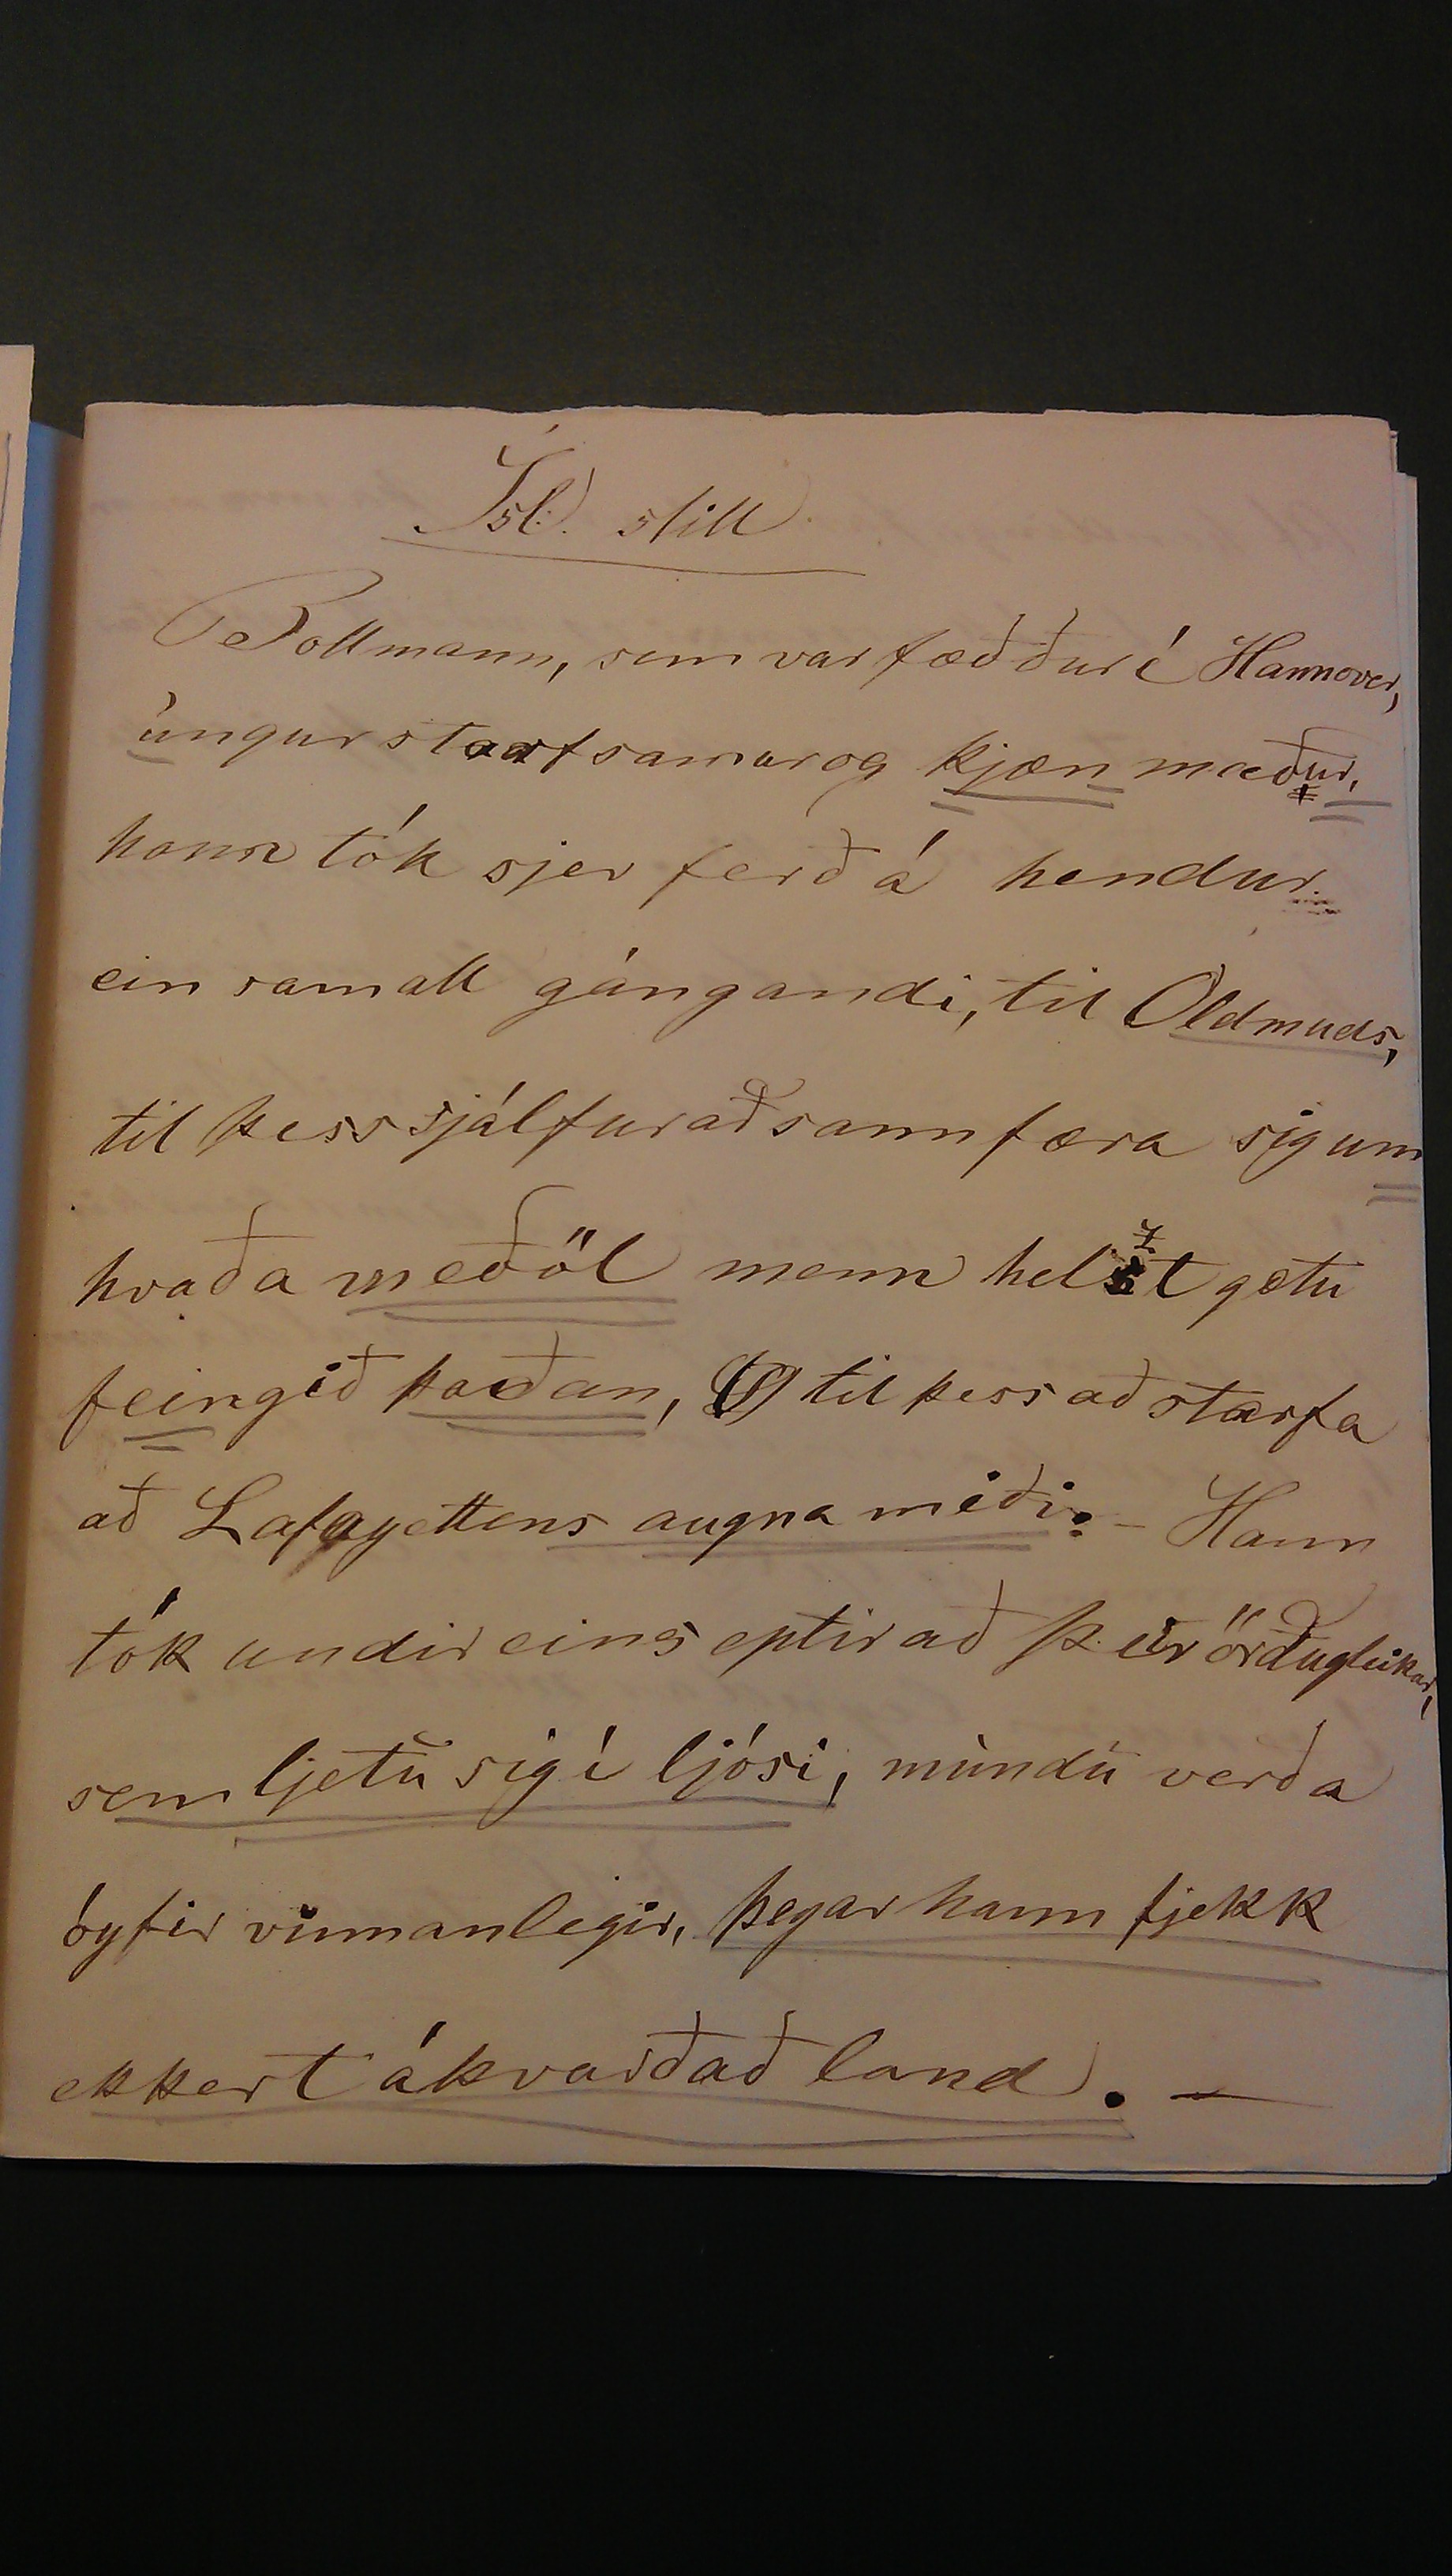 Ísl. still
Bollmann, sem var fæððuri Hannover,
úngur staarfsamur og kjæn mæður,
hann tók sjer ferð á hendur.
ein samall gángandi, til Oldmuds,
til þess sjálfur að sannfæra sig um
hvaða meðöl menn helzt gætu
feingið þaðan, til þess að starfa
að Lafayettens augna miði. - Hann
tók undir eins eptir að þeir örðugleikar,
sem ljetu sig í ljósi, mundu verða
óyfir vinnanlegir, þegar hann fjekk
ekkert ákvarðað land. —